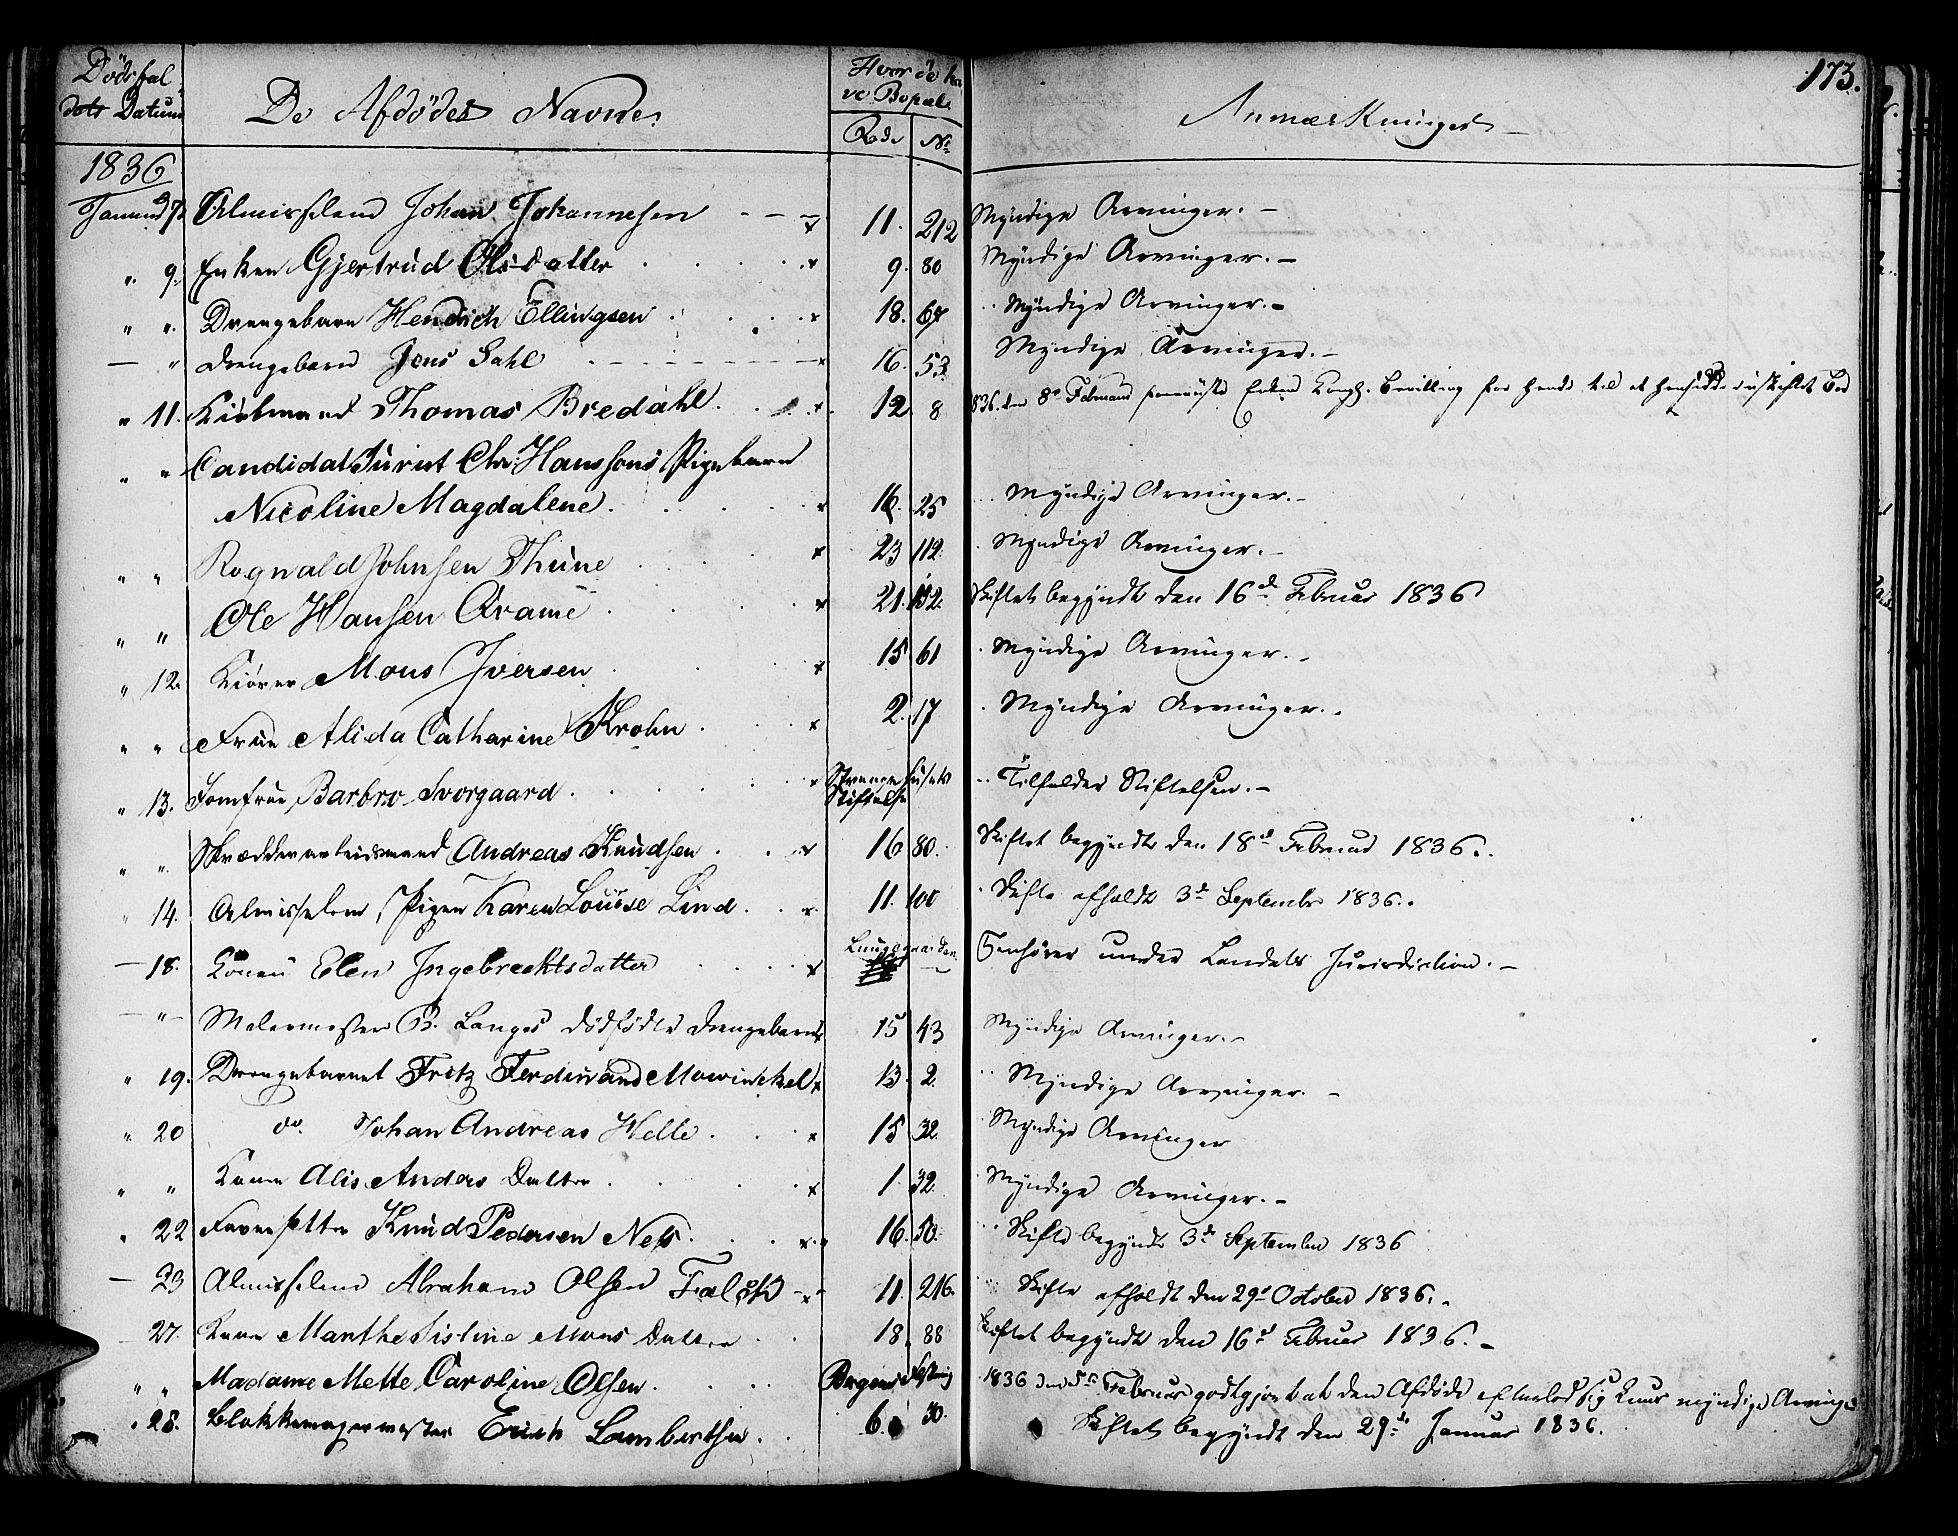 173.
Dödsfal-
dets Datum
De Afdödes Navne.
Hvor de ha-
ve Bopæl.
Rode No
Anmærkninger
1836
Januar 7. Almisselem Johan Johannesen 11. 212 Myndige Arvinger.
" 9. Enken Gjertrud Olsdatter 9. 80 Myndige Arvinger.
" " Drengebarn Hendrich Ellingsen 18. 67 Myndige Arvinger.
— " Drengebarn Jens Dahl 16. 53. Myndige Arvinger.
" 11. Kiøbmand Thomas Bredahl 12. 8 1836. den 8de Februar foreviiste Enken Kongl. Bevilling for hende til at hensidde i uskiftet Boe
" " Candidat Jurist Chr. Hanssons Pigebarn
Nicoline Magdalene. 16. 25 Myndige Arvinger.
" " Rognald Johnsen Thune 23 112. Myndige Arvinger.
" " Ole Hansen Arame 21. 132. Skiftet begyndt den 16de Februar 1836
" 12. Kiører Mons Iversen 15 61 Myndige Arvinger.
" " Frue Alida Catharine Krohn 2. 17 Myndige Arvinger.
" 13. Jomfrue Barbro Svorgaard Strangehusets Stiftelse Tilfalder Stiftelsen.
" " Skrædderarbeidsmand Andreas Knudsen 16 80. Skiftet begyndt den 18de Februar 1836.
" 14. Almisselem Pigen Karen Louise Lind 11. 100 Skifte afholdt 3de September 1836.
— 18. Konen Elen Ingebrechtsdatter Lungegaarden Henhører under Landets Jurisdiction.
— " — Malermester B. Langes dödfödte Drengebarn 15 43 Myndige Arvinger.
" 19. Drengebarnet Fritz Ferdinand Mowinckel 13. 2. Myndige Arvinger.
" 20 do. Johan Andreas Helle 15 32. Myndige Arvinger
" " Kone Alis Anders Datter 1. 32. Myndige Arvinger.
" 22 Knud Pedersen Nels 16. 50. Skifte begyndt 3de September 1836
— 23 Almisselem Abraham Olsen Falck 11. 216. Skifte afholdt den 29de October 1836.
27. Kone Marthe Sistine Mons Datter 18. 88 Skiftet begyndt den 16de Februar 1836.
" " Madame Mette Caroline Olsen Bergens Fæstning 1836 den 5te Februar godtgjort at den Afdøde efterlod sig kuns myndige Arvinger
" 28. Blokkemagermester Erich Lambertsen 6. 30. Skiftet begyndt den 29de Januar 1836.